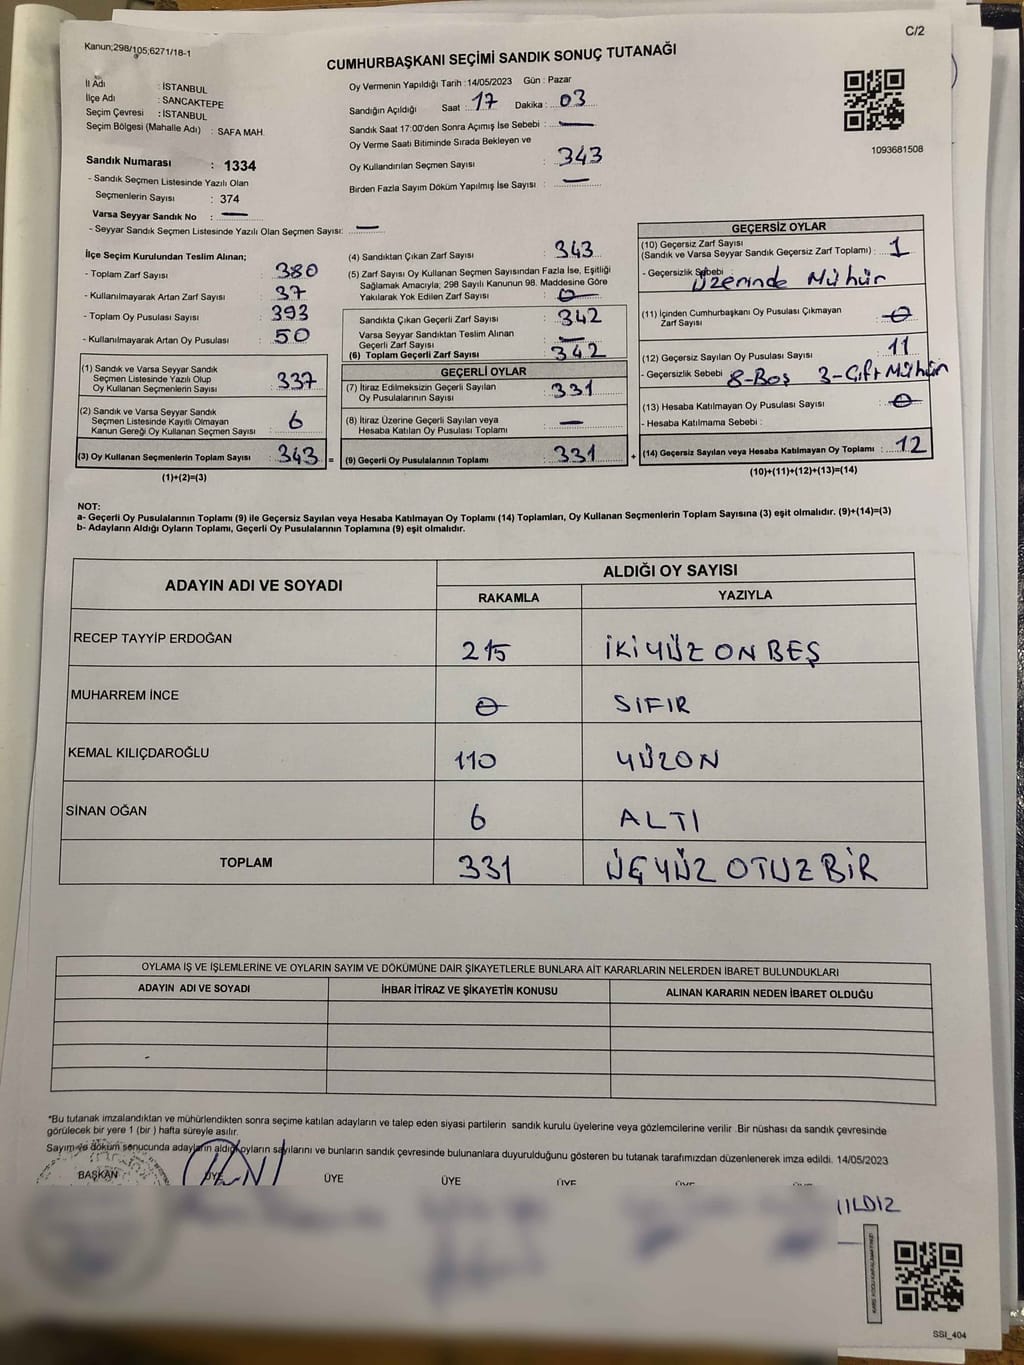 C/2
Kanun;298/105;6271/18-1
CUMHURBAŞKANI SEÇİMİ SANDIK SONUÇ TUTANAĞI
İl Adı : İSTANBUL
İlçe Adı : SANCAKTEPE
Seçim Çevresi : İSTANBUL
Seçim Bölgesi (Mahalle Adı) : SAFA MAH.
Sandık Numarası : 1334
- Sandık Seçmen Listesinde Yazılı Olan
Seçmenlerin Sayısı : 374
Varsa Seyyar Sandık No : —
- Seyyar Sandık Seçmen Listesinde Yazılı Olan Seçmen Sayısı: —
Oy Vermenin Yapıldığı Tarih : 14/05/2023 Gün : Pazar
Sandığın Açıldığı Saat : 17 Dakika : 03
Sandık Saat 17:00'den Sonra Açımış İse Sebebi : —
Oy Verme Saati Bitiminde Sırada Bekleyen ve
Oy Kullandırılan Seçmen Sayısı : 343
Birden Fazla Sayım Döküm Yapılmış İse Sayısı : —
1093681508
İlçe Seçim Kurulundan Teslim Alınan;
- Toplam Zarf Sayısı : 380
- Kullanılmayarak Artan Zarf Sayısı : 37
- Toplam Oy Pusulası Sayısı : 393
- Kullanılmayarak Artan Oy Pusulası : 50
(1) Sandık ve Varsa Seyyar Sandık
Seçmen Listesinde Yazılı Olup
Oy Kullanan Seçmenlerin Sayısı : 337
(2) Sandık ve Varsa Seyyar Sandık
Seçmen Listesinde Kayıtlı Olmayan
Kanun Gereği Oy Kullanan Seçmen Sayısı : 6
(3) Oy Kullanan Seçmenlerin Toplam Sayısı : 343 =
(1)+(2)=(3)
(4) Sandıktan Çıkan Zarf Sayısı : 343
(5) Zarf Sayısı Oy Kullanan Seçmen Sayısından Fazla İse, Eşitliği
Sağlamak Amacıyla; 298 Sayılı Kanunun 98. Maddesine Göre
Yakılarak Yok Edilen Zarf Sayısı : 0
Sandıkta Çıkan Geçerli Zarf Sayısı : 342
Varsa Seyyar Sandıktan Teslim Alınan
Geçerli Zarf Sayısı : —
(6) Toplam Geçerli Zarf Sayısı : 342
GEÇERLİ OYLAR
(7) İtiraz Edilmeksizin Geçerli Sayılan
Oy Pusulalarının Sayısı : 331
(8) İtiraz Üzerine Geçerli Sayılan veya
Hesaba Katılan Oy Pusulası Toplamı : —
(9) Geçerli Oy Pusulalarının Toplamı : 331 +
GEÇERSİZ OYLAR
(10) Geçersiz Zarf Sayısı
(Sandık ve Varsa Seyyar Sandık Geçersiz Zarf Toplamı) : 1
- Geçersizlik Sebebi : Üzerinde Mühür
(11) İçinden Cumhurbaşkanı Oy Pusulası Çıkmayan
Zarf Sayısı : 0
(12) Geçersiz Sayılan Oy Pusulası Sayısı : 11
- Geçersizlik Sebebi 8-Boş 3-Çift Mühür
(13) Hesaba Katılmayan Oy Pusulası Sayısı : 0
- Hesaba Katılmama Sebebi :
(14) Geçersiz Sayılan veya Hesaba Katılmayan Oy Toplamı : 12
(10)+(11)+(12)+(13)=(14)
NOT:
a- Geçerli Oy Pusulalarının Toplamı (9) ile Geçersiz Sayılan veya Hesaba Katılmayan Oy Toplamı (14) Toplamları, Oy Kullanan Seçmenlerin Toplam Sayısına (3) eşit olmalıdır. (9)+(14)=(3)
b- Adayların Aldığı Oyların Toplamı, Geçerli Oy Pusulalarının Toplamına (9) eşit olmalıdır.
ADAYIN ADI VE SOYADI ALDIĞI OY SAYISI
RAKAMLA YAZIYLA
RECEP TAYYİP ERDOĞAN 215 İKİYÜZ ON BEŞ
MUHARREM İNCE 0 SIFIR
KEMAL KILIÇDAROĞLU 110 YÜZON
SİNAN OĞAN 6 ALTI
TOPLAM 331 ÜÇYÜZ OTUZ BİR
OYLAMA İŞ VE İŞLEMLERİNE VE OYLARIN SAYIM VE DÖKÜMÜNE DAİR ŞİKAYETLERLE BUNLARA AİT KARARLARIN NELERDEN İBARET BULUNDUKLARI
ADAYIN ADI VE SOYADI İHBAR İTİRAZ VE ŞİKAYETİN KONUSU ALINAN KARARIN NEDEN İBARET OLDUĞU
*Bu tutanak imzalandıktan ve mühürlendikten sonra seçime katılan adayların ve talep eden siyasi partilerin sandık kurulu üyelerine veya gözlemcilerine verilir .Bir nüshası da sandık çevresinde
görülecek bir yere 1 (bir ) hafta süreyle asılır.
Sayım ve döküm sonucunda adayların aldığı oyların sayılarını ve bunların sandık çevresinde bulunanlara duyurulduğunu gösteren bu tutanak tarafımızdan düzenlenerek imza edildi. 14/05/2023
BAŞKAN ÜYE ÜYE ÜYE ÜYE
ILDIZ
SSI_404